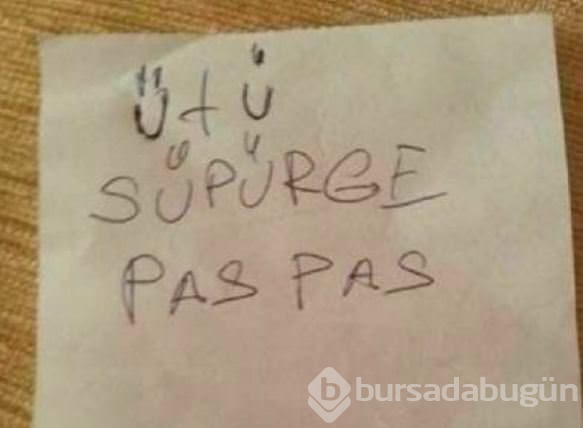 ütü
SÜPÜRGE
PAS PAS
bursadabugün